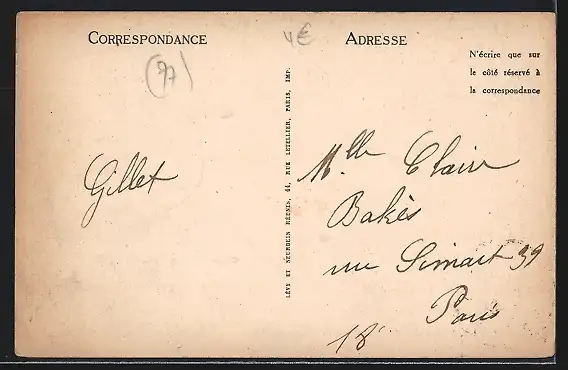 CORRESPONDANCE
4€
ADRESSE
(77)
N'écrire que sur
le côté réservé à
la correspondance
LÉVY ET NEURDEIN RÉUNIS, 44, RUE LETELLIER, PARIS, IMP.
Gillet
Mlle Clair
Bakès
rue Simart 39
Paris
18e